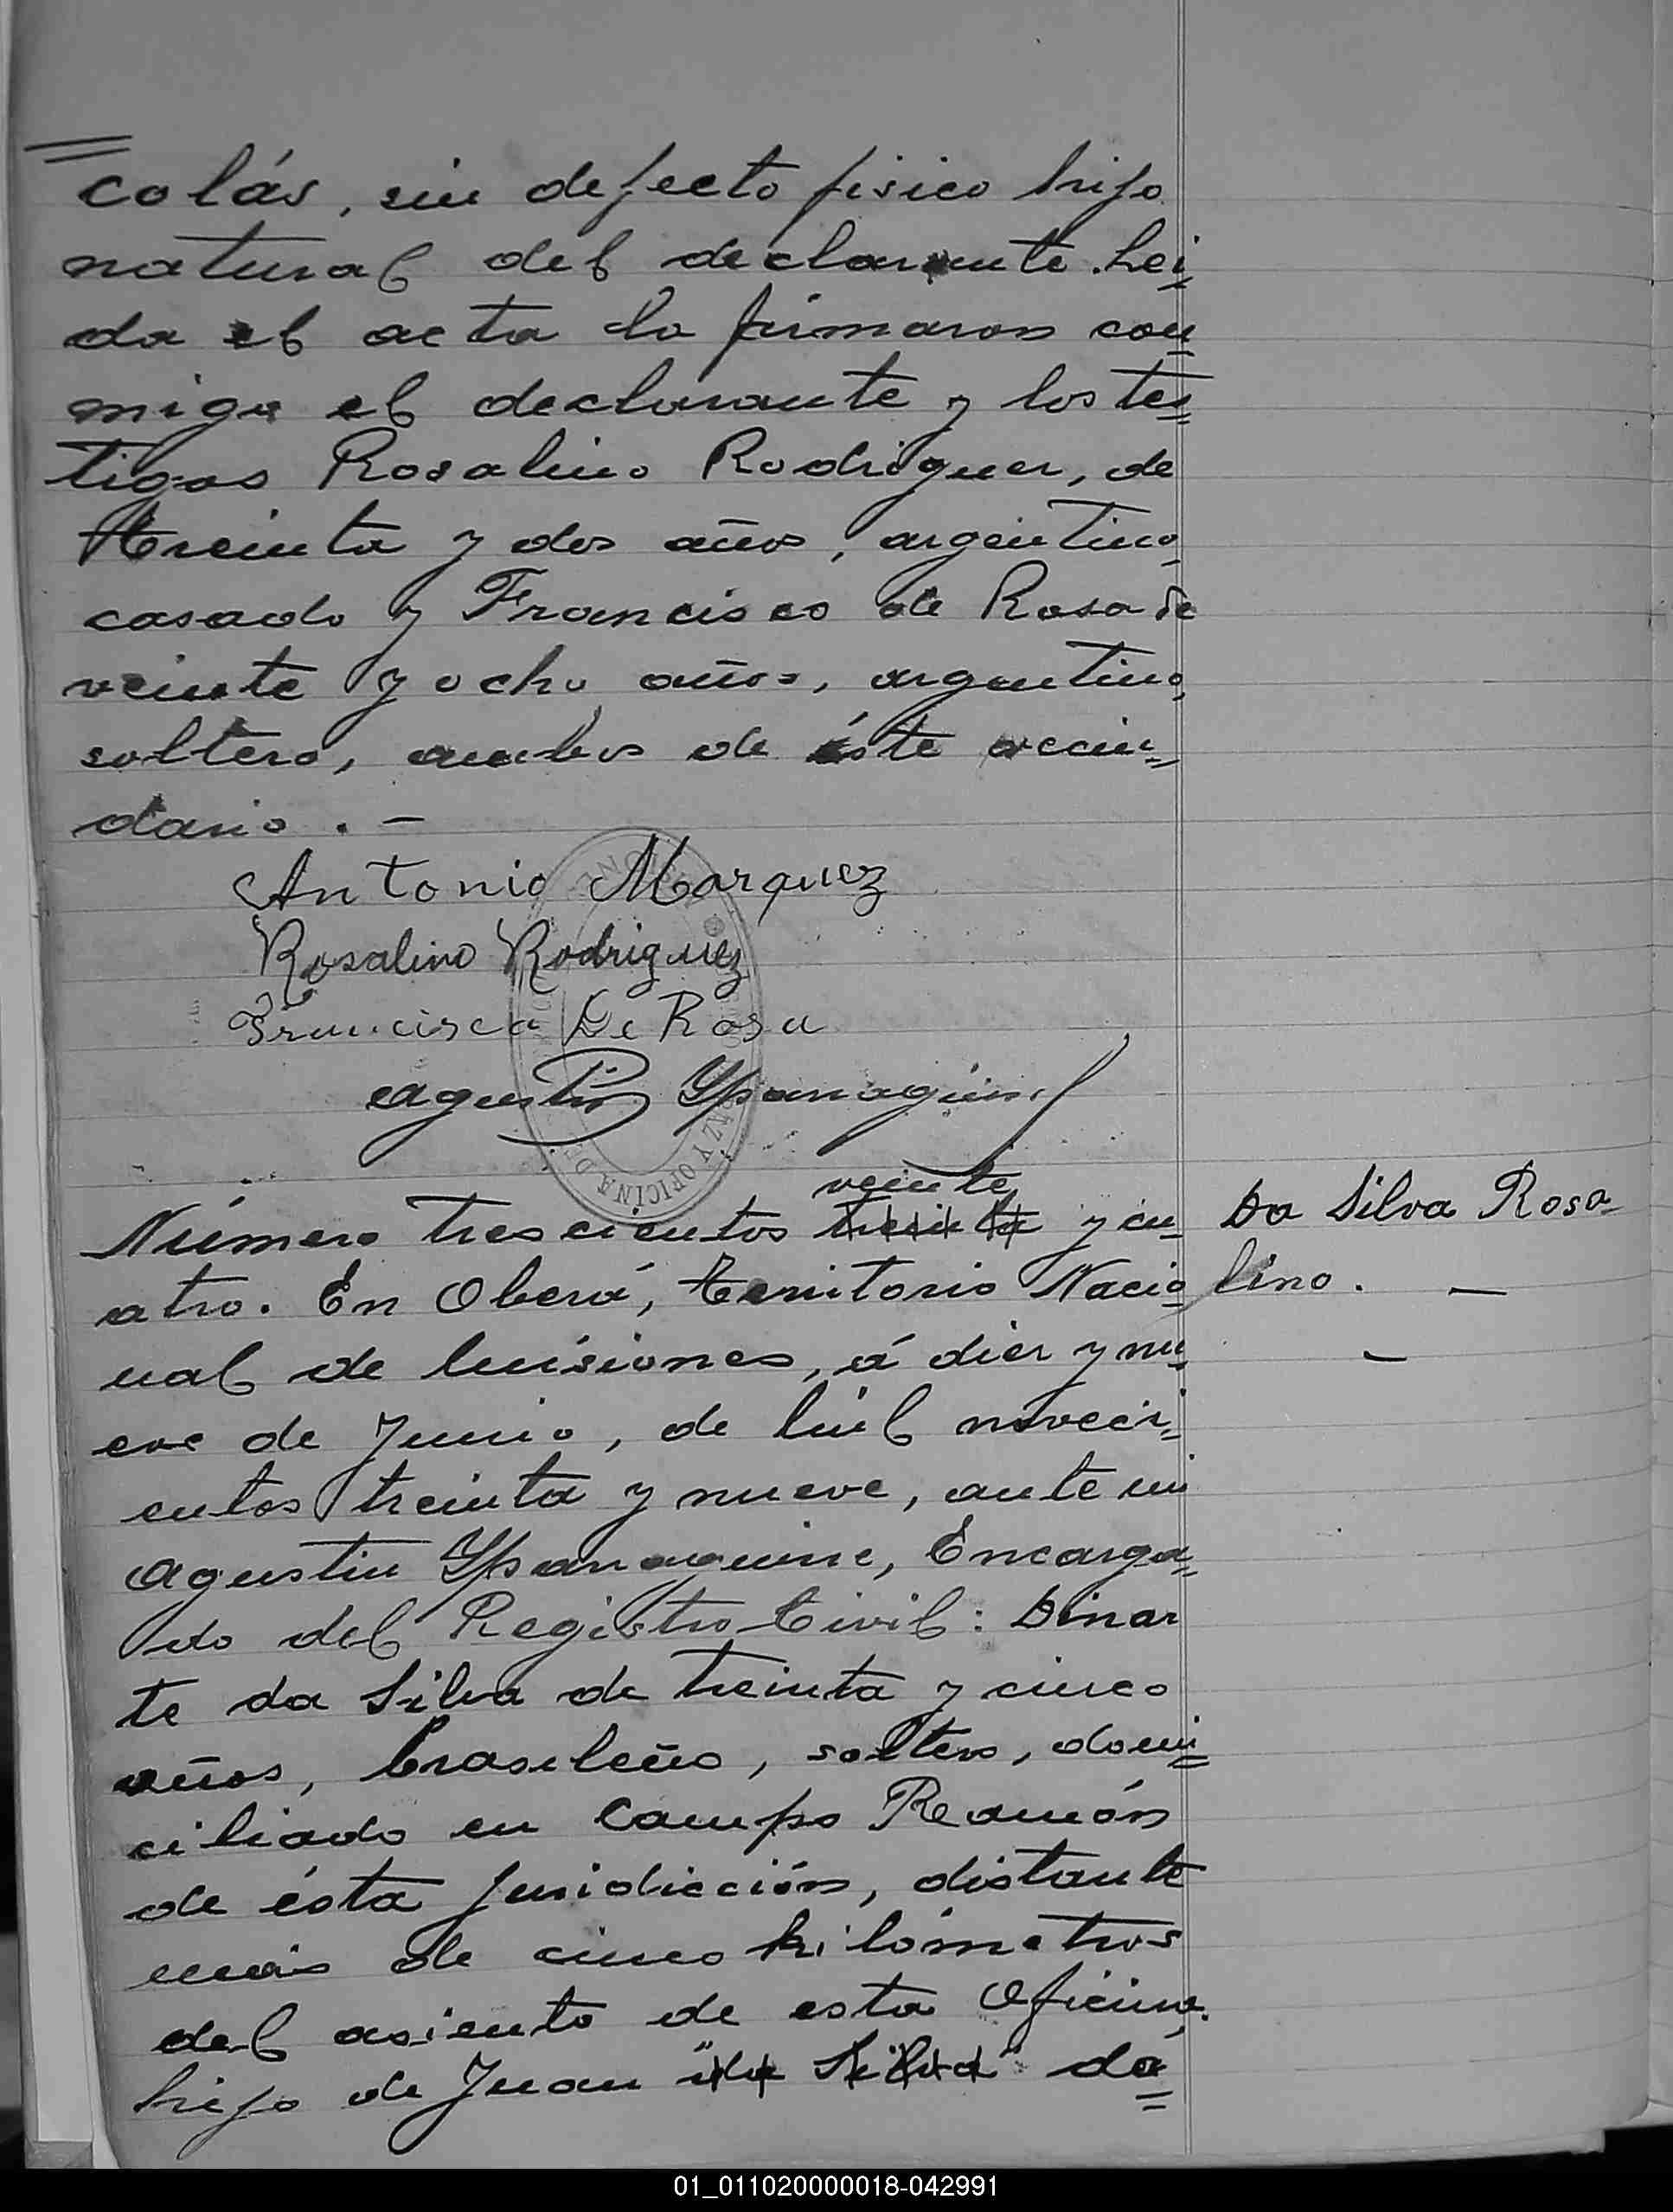 colás, sin defecto fisico hijo
natural del declarante. Lei=
da el acta la firmaron con=
migo el declarante y los tes=
tigos Rosalino Rodriguez, de
treinta y dos años, argentino,
casado y Francisco de Rosa de
veinte y ocho años, argentino,
soltero, ambos de éste vecin=
dario . -
Antonio Marquez
Rosalino Rodriguez
Francisco De Rosa
Agustin
veinte
Número trescientos treinta y cu=
atro. En Oberá, territorio Nacio
nal de Misiones, á diez y nu=
eve de Junio, de mil noveci=
entos treinta y nueve, ante mi
Agustin Encarga=
do del Registro Civil: Dinar
te da Silva de treinta y cinco
años, brasileño, soltero, domi=
ciliado en Campo Ramón
de ésta jurisdicción, distante
más de cinco kilómetros
del asiento de esta Oficina.
hijo de Juan "da Silva" da=
Da Silva Rosa
lino. —
-
01_011020000018-042991